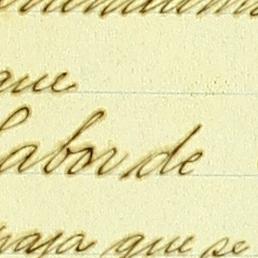 que
Labor de
paja que se